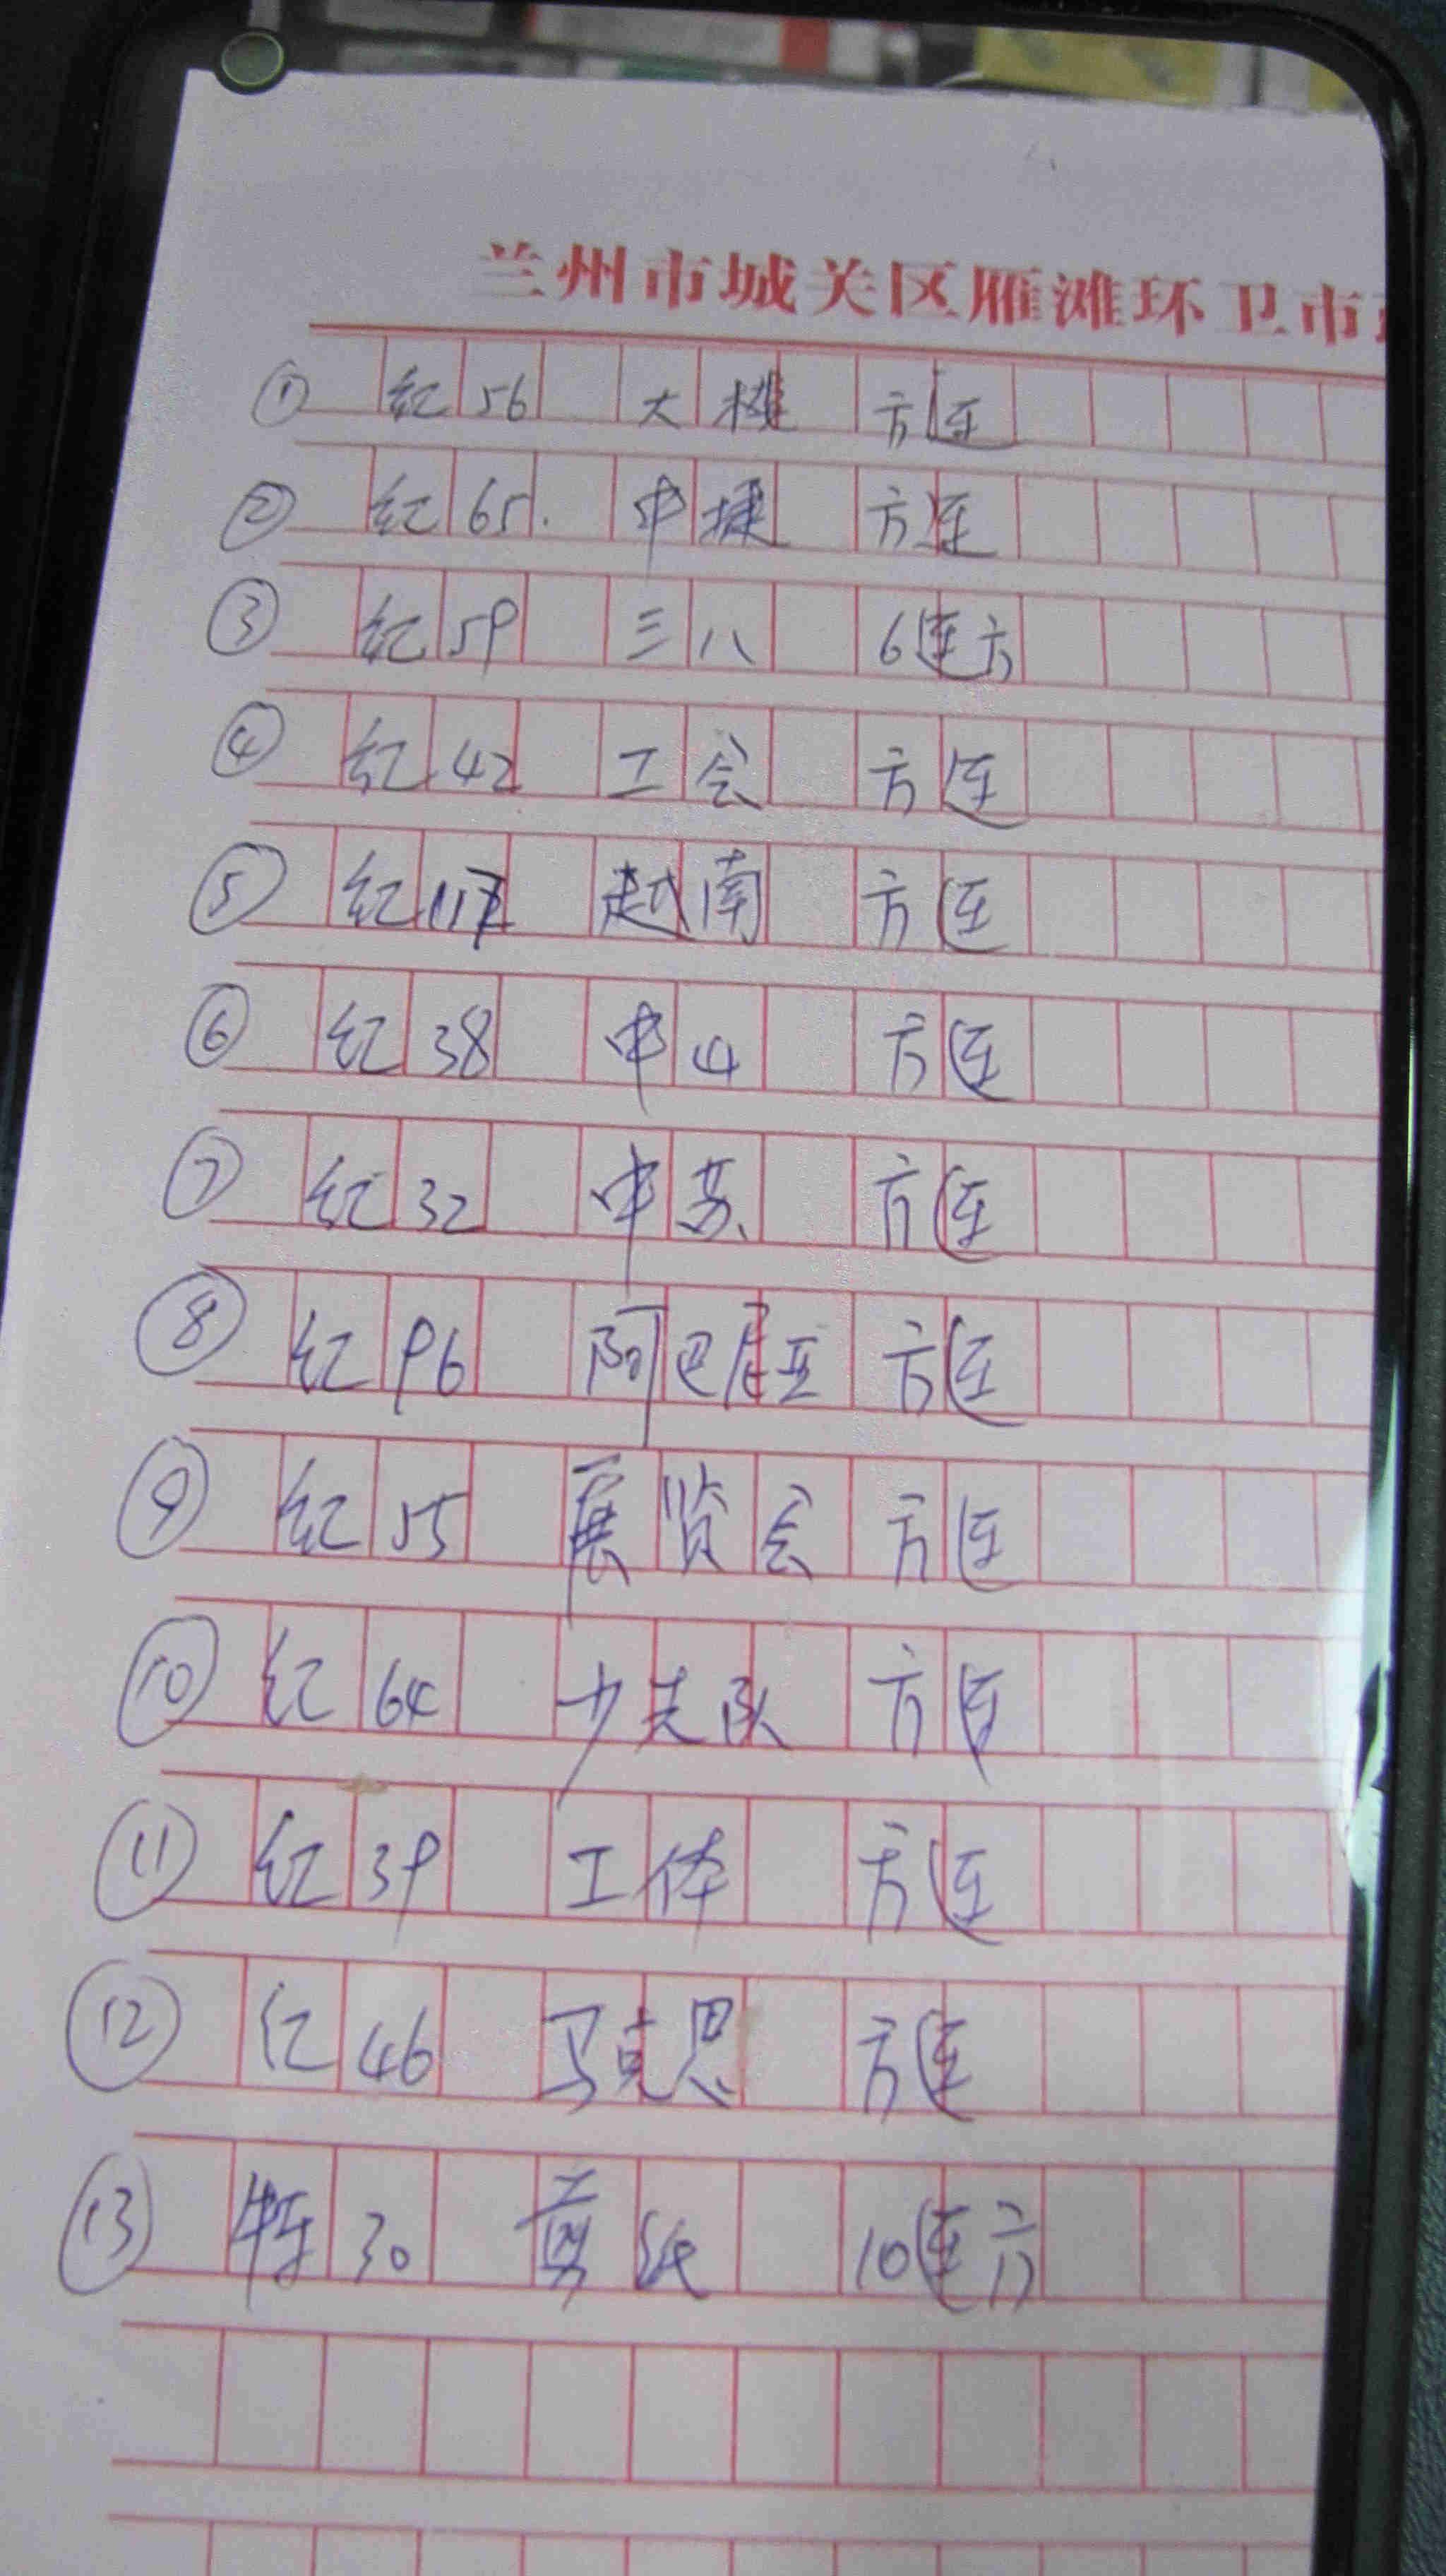 兰州市城关区雁滩环卫市
① 红56 大摊 方连
② 红65. 中捷 方连
③ 红59 三八 6连方
④ 红42 工会 方连
⑤ 红117 越南 方连
⑥ 红38 中4 方连
⑦ 红32 中苏 方连
⑧ 红96 阿巴尼亚 方连
⑨ 红55 展览会 方连
⑩ 红64 少先队 方连
⑪ 红39 工体 方连
⑫ 红46 马克思 方连
⑬ 特30 剪纸 10连方